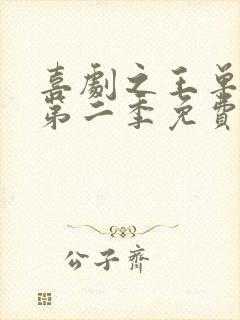 喜劇之王單
第二季免費
公子齊